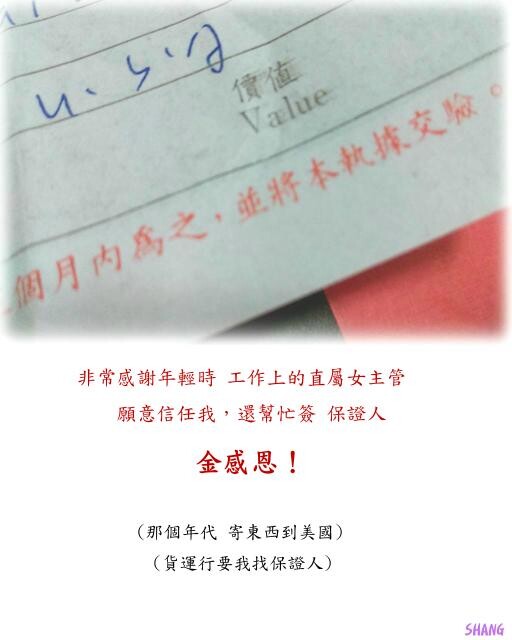 價值
Value
個月內為之，並將本執據交驗。
非常感謝年輕時 工作上的直屬女主管
願意信任我，還幫忙簽 保證人
金感恩！
(那個年代 寄東西到美國)
(貨運行要我找保證人)
SHANG